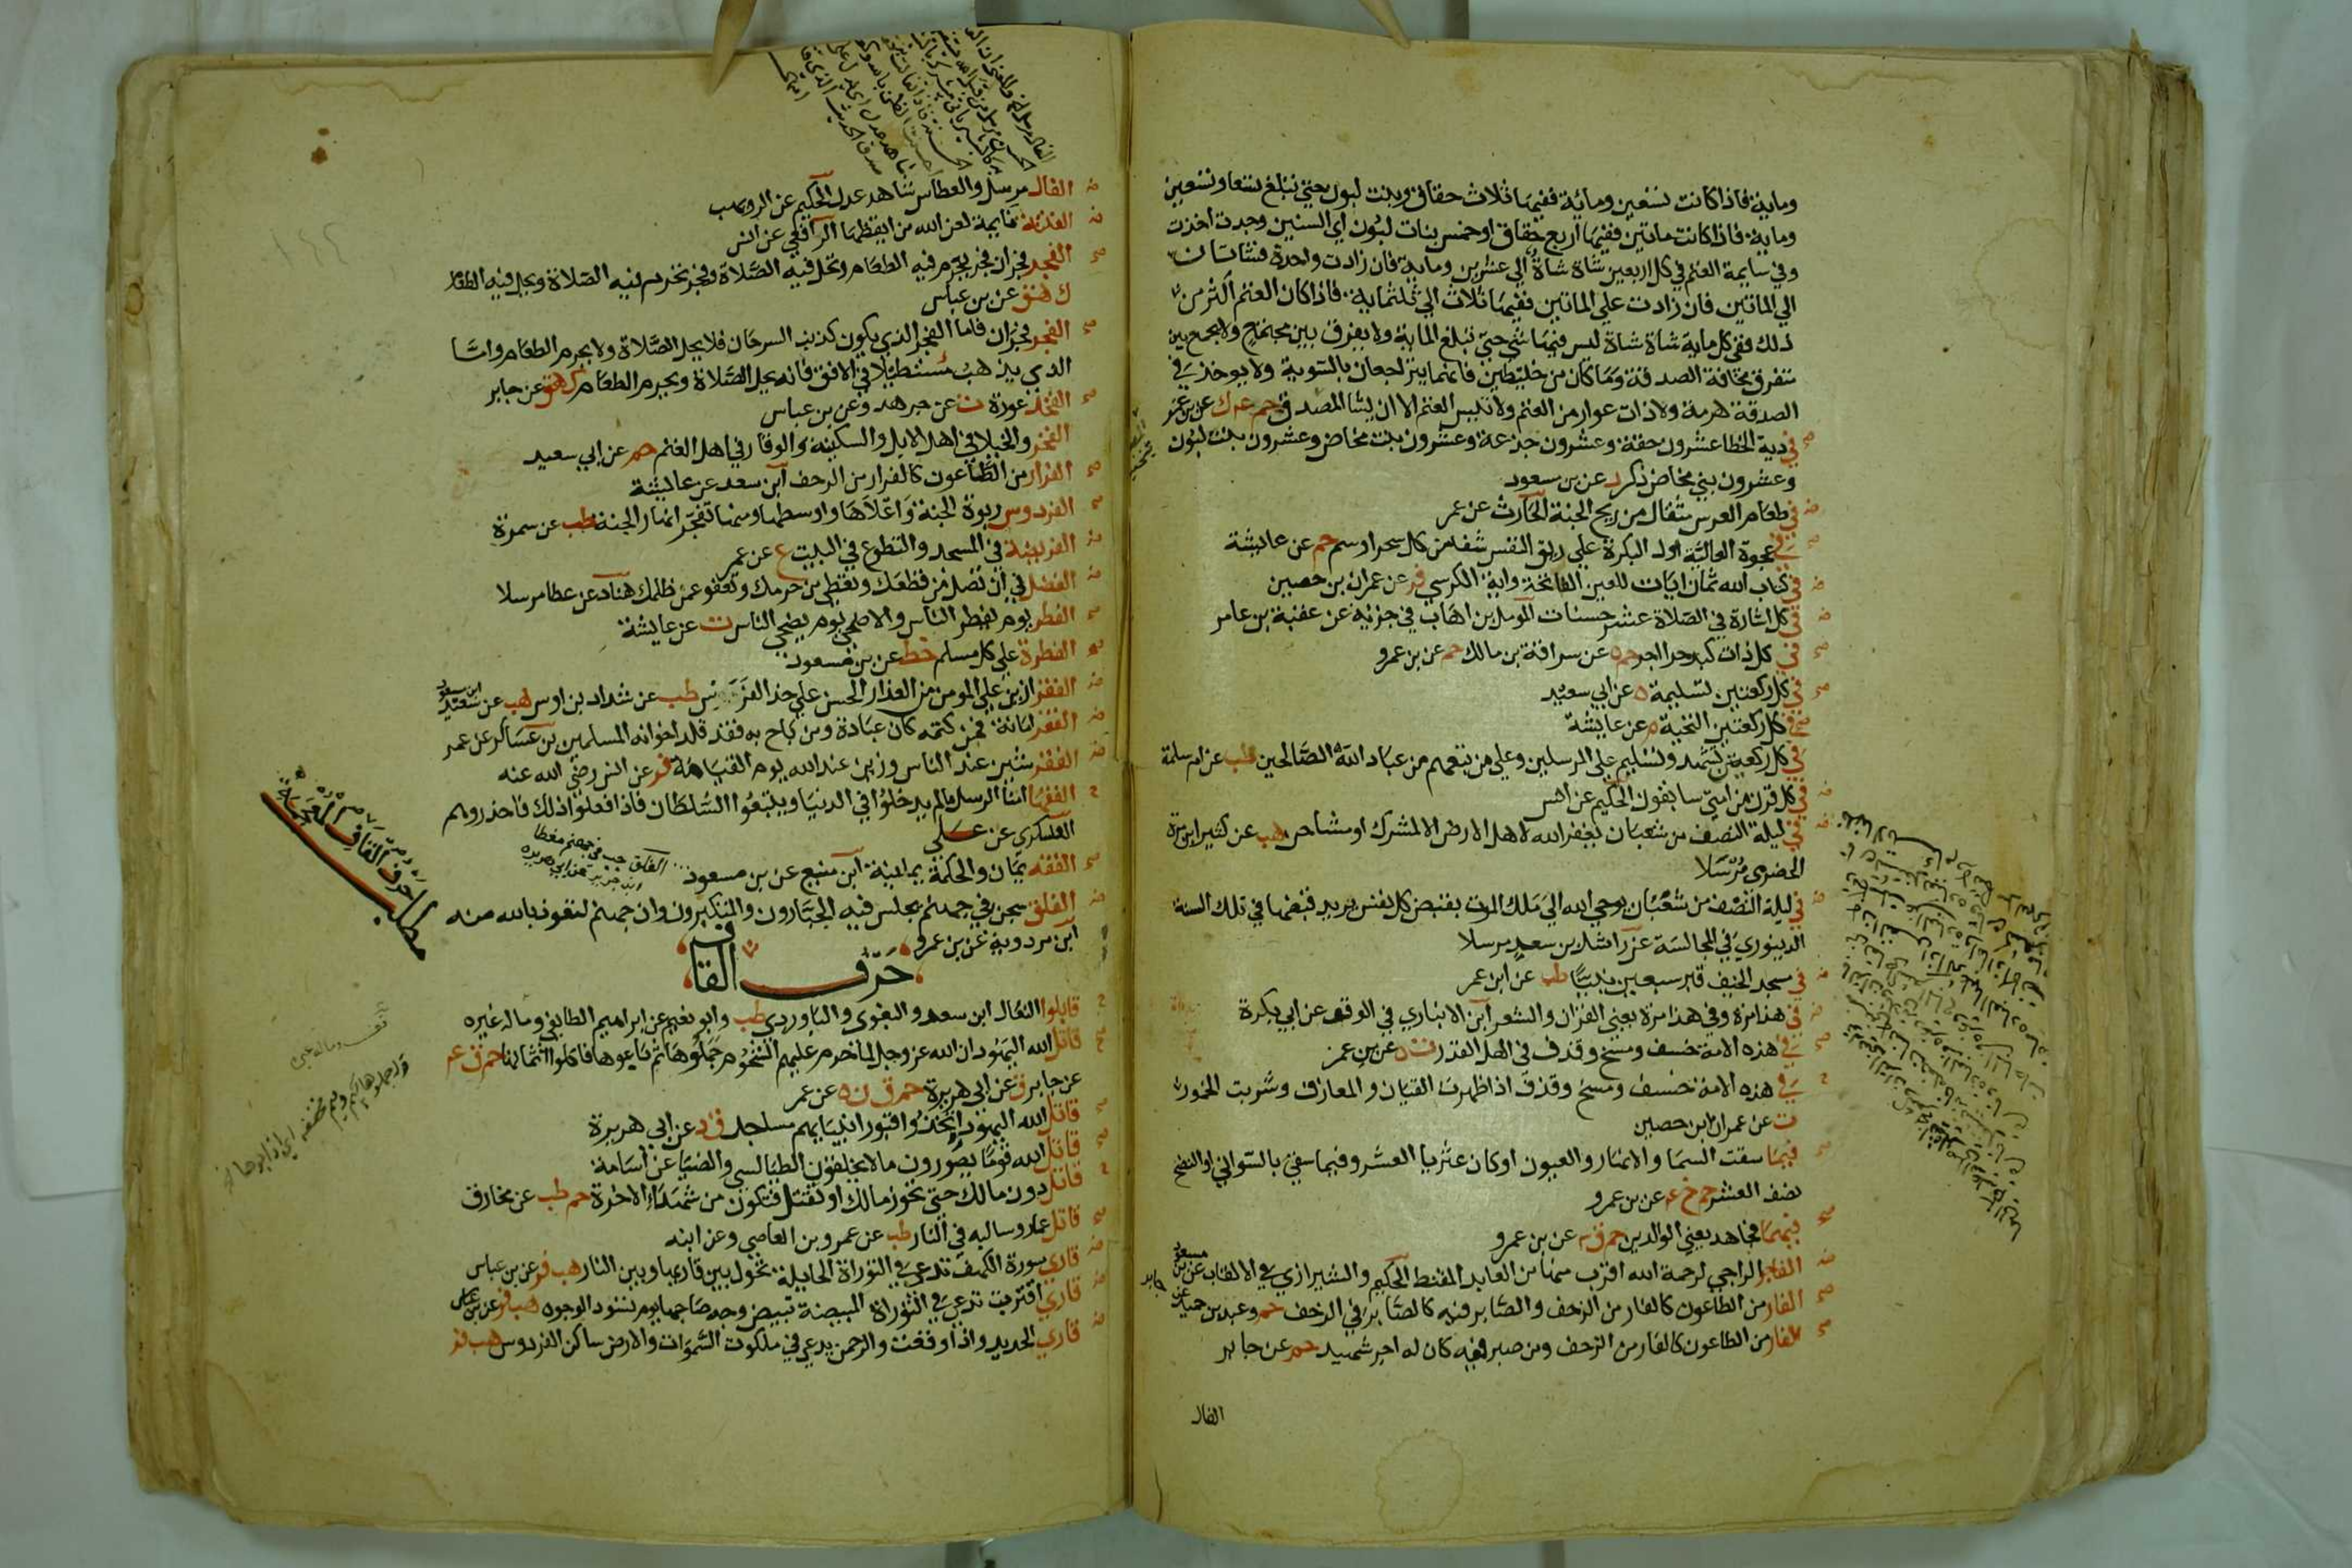 وماية فاذا كانت تسعين ومائة ففيها ثلاث حقاق وبنت لبون حتي تبلغ تسعا وتسعين
وماية فاذا كانت ماتين ففيها اربع حقاق او خمس بنات لبون اي السنين وجدت اخذت
وفي سايمة الغنم في كل اربعين شاة شاة الي عشرين وماية فان زادت واحدة فشاتان
الي الماتين فان زادت علي الماتين ففيها ثلاث الي ثلثماية فاذا كان الغنم اكثر من
ذلك ففي كل ماية شاة شاة ليس فيها شي حتي تبلغ الماية ولا يفرق بين مجتمع ولا يجمع بين
متفرق مخافة الصدقة وما كان من خليطين فانهما يتراجعان بالسوية ولا يوخذ في
الصدقة هرمة ولا ذات عوار من الغنم ولا تيس الغنم الا ان يشا المصدق حم عه ك عن بن عمر
في دية الخطا عشرون حقة وعشرون جذعة وعشرون بنت مخاض وعشرون بنت لبون
وعشرون بني مخاض ذكر د عن بن مسعود
في طعام العرس مثقال من ريح الجنة الحارث عن عمر
في عجوة العالية اول البكرة علي ريق النفس شفا من كل سحر او سم حم عن عايشة
في كتاب الله ثمان ايات للعين الفاتحة واية الكرسي فر عن عمران بن حصين
في كل اشارة في الصلاة عشر حسنات المومل بن اهاب في جزئه عن عقبة بن عامر
في كل ذات كبد حرا اجر حم ه عن سراقة بن مالك حم عن بن عمرو
في كل ركعتين تسليمة ه عن ابي سعيد
في كل ركعتين التحية م عن عايشة
في كل ركعتين تشهد وتسليم علي المرسلين وعلي من تبعهم من عباد الله الصالحين طب عن ام سلمة
في كل قرن من امتي سابقون الحكيم عن انس
في ليلة النصف من شعبان يغفر الله لاهل الارض الا لمشرك او مشاحن هب عن كثير بن مرة
الحضرمي مرسلا
في ليلة النصف من شعبان يوحي الله الي ملك الموت بقبض كل نفس يريد قبضها في تلك السنة
الدينوري في المجالسة عن راشد بن سعد مرسلا
في مسجد الخيف قبر سبعين نبيا طب عن ابن عمر
في هذا مرة وفي هذا مرة يعني القران والشعر ابن الانباري في الوقف عن ابي بكرة
في هذه الامة خسف ومسخ وقذف في اهل القدر ت ه عن بن عمر
في هذه الامة خسف ومسخ وقذف اذا ظهرت القيان والمعازف وشربت الخمور
ت عن عمران بن حصين
فيما سقت السما والانهار والعيون او كان عثريا العشر وفيما سقي بالسواني او النضح
نصف العشر حم خ عه عن بن عمرو
فيهما فجاهد يعني الوالدين حم ق عن بن عمرو
الفاجر الراجي لرحمة الله اقرب منها من العابد المقنط الحكيم والشيرازي في الالقاب عن بن مسعود
الفار من الطاعون كالفار من الزحف والصابر فيه كالصابر في الزحف حم وعبد بن حميد عن جابر
الفار من الطاعون كالفار من الزحف ومن صبر فيه كان له اجر شهيد حم عن جابر
الفال
الفال مرسل والعطاس شاهد عدل الحكيم عن الرويهب
الفتنة نايمة لعن الله من ايقظها الرافعي عن انس
الفجر فجران فجر يحرم فيه الطعام وتحل فيه الصلاة وفجر تحرم فيه الصلاة ويحل فيه الطعام
ك هق عن بن عباس
الفجر فجران فاما الفجر الذي يكون كذنب السرحان فلا يحل الصلاة ولا يحرم الطعام واما
الذي يذهب مستطيلا في الافق فانه يحل الصلاة ويحرم الطعام ك هق عن جابر
الفخذ عورة ت عن جرهد وعن بن عباس
الفخر والخيلا في اهل الابل والسكينة والوقار في اهل الغنم حم عن ابي سعيد
الفرار من الطاعون كالفرار من الزحف ابن سعد عن عايشة
الفردوس ربوة الجنة واعلاها واوسطها ومنها تفجر انهار الجنة طب عن سمرة
الفريضة في المسجد والتطوع في البيت ع عن عمر
الفضل في ان تصل من قطعك وتعطي من حرمك وتعفو عمن ظلمك هناد عن عطا مرسلا
الفطر يوم يفطر الناس والاضحي يوم يضحي الناس ت عن عايشة
الفطرة علي كل مسلم خط عن بن مسعود
الفقر ازين علي المومن من العذار الحسن علي خد الفرس طب عن شداد بن اوس هب عن سعيد ابن مسعود
الفقر امانة فمن كتمه كان عبادة ومن باح به فقد قلد اخوانه المسلمين بن عساكر عن عمر
الفقر شين عند الناس وزين عند الله يوم القيامة فر عن انس رضي الله عنه
الفقها امنا الرسل مالم يدخلوا في الدنيا ويتبعوا السلطان فاذا فعلوا ذلك فاحذروهم
العسكري عن علي
الفقه يمان والحكمة يمانية ابن منيع عن بن مسعود
الفلق جب في جهنم مغطا
ابن جرير عن ابي هريرة
الفلق سجن في جهنم يحبس فيه الجبارون والمتكبرون وان جهنم لتعوذ بالله منه
ابن مردوية عن بن عمرو
حرف القاف
قابلوا النعال ابن سعد والبغوي والباوردي طب وابو نعيم عن ابراهيم الطايفي وماله غيره
قاتل الله اليهود ان الله عز وجل لما حرم عليهم الشحوم جملوها ثم باعوها فاكلوا اثمانها حم ق عه
عن جابر ق عن ابي هريرة حم ق ن ه عن عمر
قاتل الله اليهود اتخذوا قبور انبيايهم مساجد ق د عن ابي هريرة
قاتل الله قوما يصورون ما لا يخلقون الطيالسي والضيا عن اسامة
قاتل دون مالك حتي تحوز مالك او تقتل فتكون من شهداء الاخرة حم طب عن مخارق
قاتل عمار وسالبه في النار طب عن عمرو بن العاصي وعن ابنه
قاري سورة الكهف تدعي في التوراة الحايلة تحول بين قاريها وبين النار هب فر عن بن عباس
قاري اقتربت تدعي في التوراة المبيضة تبيض وجه صاحبها يوم تسود الوجوه هب فر عن بن عباس
قاري الحديد واذا وقعت والرحمن يدعي في ملكوت السموات والارض ساكن الفردوس هب فر